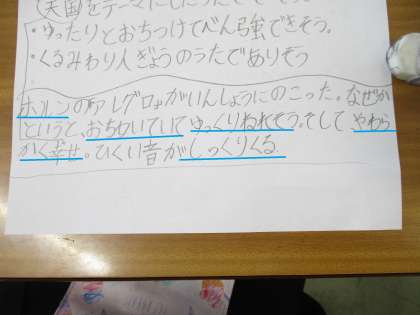 (天国)をテーマにした
・ゆったりとおちつけてべん強できそう。
・くるみわり人ぎょうのうたでありそう
ホルンのアレグロがいんしょうにのこった。なぜか
というと、おち好いていてゆっくりねれそう。そして、やわら
かく幸せ。ひくい音がしっくりくる。